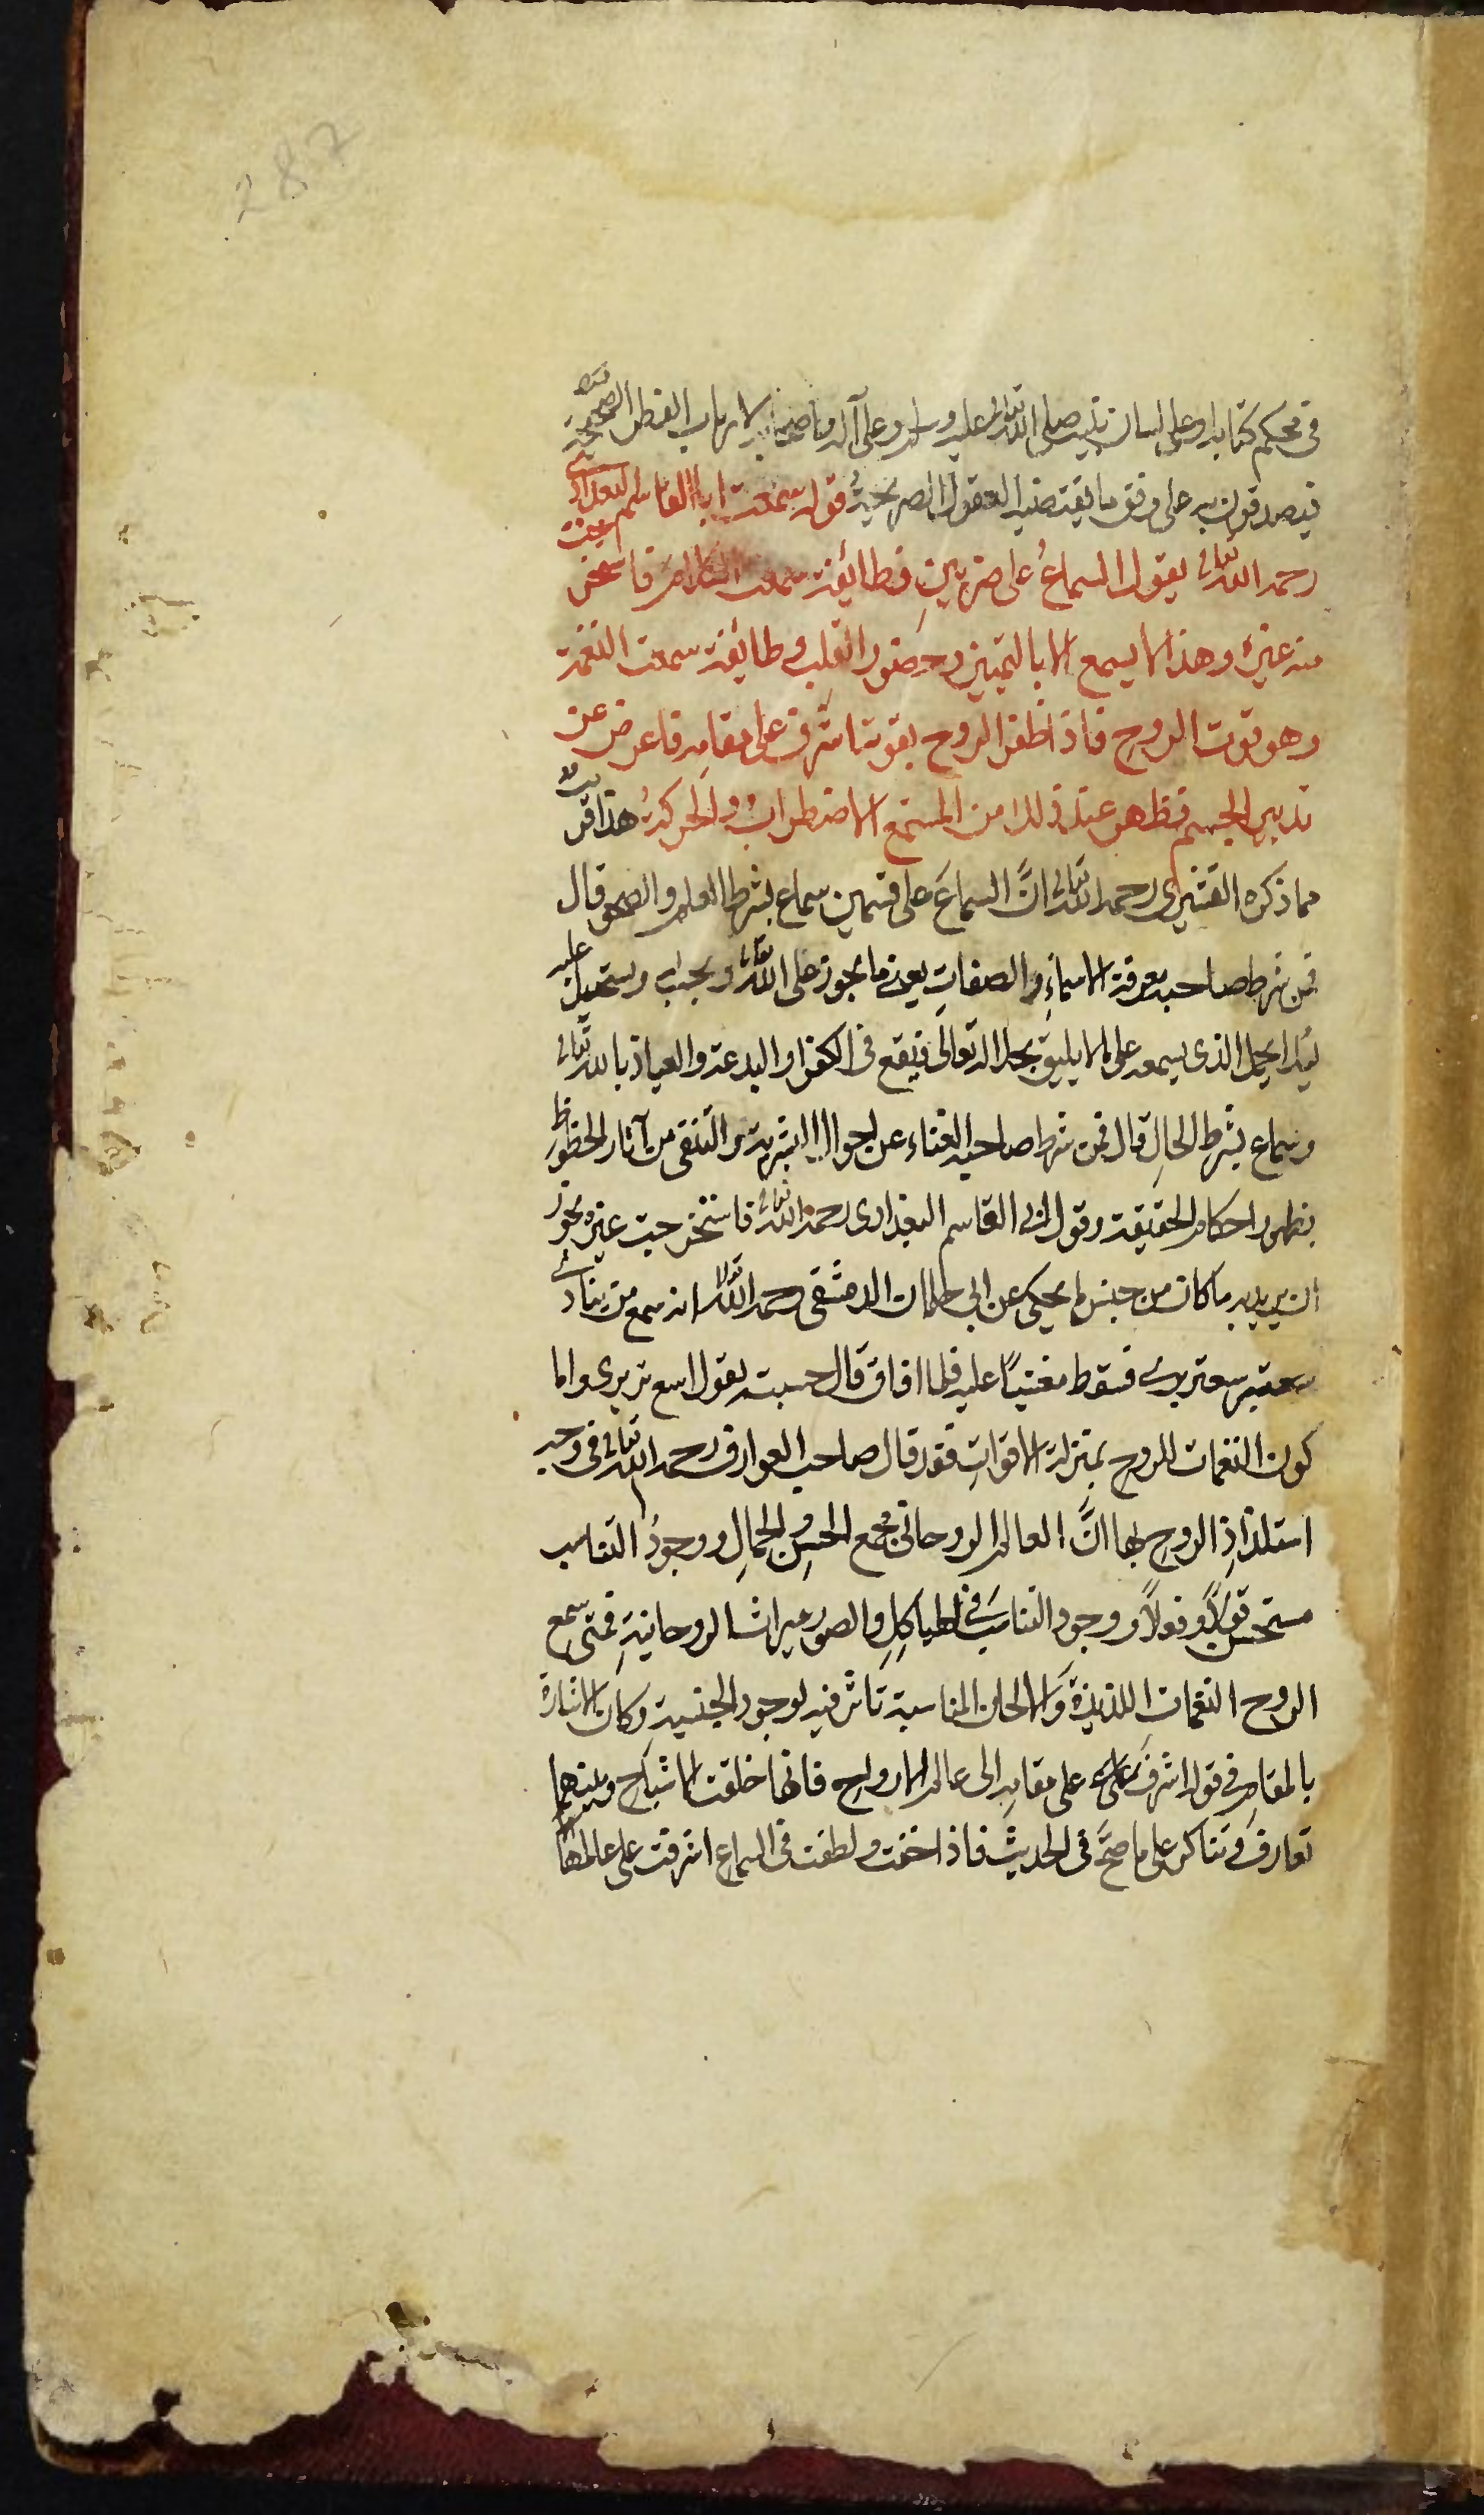 287
فى محكم كتابه او على لسان نبيه صلى الله تعالى عليه وسلم وعلى آله واصحابه لارباب الفطر الصحيحة
فيصدقون به على وفق ما يقتضيه العقول الصريحة قوله سمعت ابا القاسم البغدادى
رحمه الله تعالى يقول السماعُ على ضربينِ فطائفة سمعت الكلامَ فاستخرجت
منه غيره وهذا لا يسمع الا بالتمييز وحضور القلب وطائفة سمعت النغمة
وهو قوت الروحِ فاذا ظفر الروح بقوته اشرف على مقامِه فاعرض عن
تدبير الجسم فيظهر عند ذلك من المستمع الاضطرابُ والحركةُ هذا قريب
مما ذكره القشيرى رحمه الله تعالى انَّ السماعَ على قسمين سماع بشرط العلم والصحو قال
فمن شرط صاحبه معرفة الاسماءِ والصفاتِ يعنى ما يجوز على الله تعالى ويجب له ويستحيل عليه
لئلا يحمل الذى يسمعه على ما لا يليق بجلاله تعالى فيقع فى الكفر او البدعة والعياذ بالله تعالى
وسماع بشرط الحالِ قال فمن شرط صاحبه الفناء عن احوال البشرية والتنقى من آثار الحظوظ
بظهور احكام الحقيقة وقول ابى القاسم البغدادى رحمه الله تعالى فاستخرجت غيره يجوز
ان يريد به ما كان من جنس ما يحكى عن ابى حلمان الدمشقى رحمه الله تعالى انه سمع من ينادى
سعتر برى فسقط مغشيًا عليه فلما افاق قال حسبته يقول اسع تر برى واما
كون النغمات للروحِ بمنزلة الاقواتِ فقد قال صاحب العوارف رحمه الله تعالى فى وجه
استلذاذِ الروحِ بها انَّ العالم الروحانى مجمع الحسنِ والجمالِ ووجودُ التناسب
مستحسن قولاً وفعلاً ووجود التناسب فى الهياكلِ والصور ميراث الروحانيةِ فمتى سمع
الروح النغمات اللذيذة والالحان المناسبة تاثر فيه لوجود الجنسية وكان الاشارة
بالمقام فى قوله اشرف على مقامه الى عالم الارواح فانها خلقت الاشباح وبينهما
تعارف وتناكر على ما صحَّ فى الحديث فاذا خفت ولطفت فى السماع اشرفت على عالمها